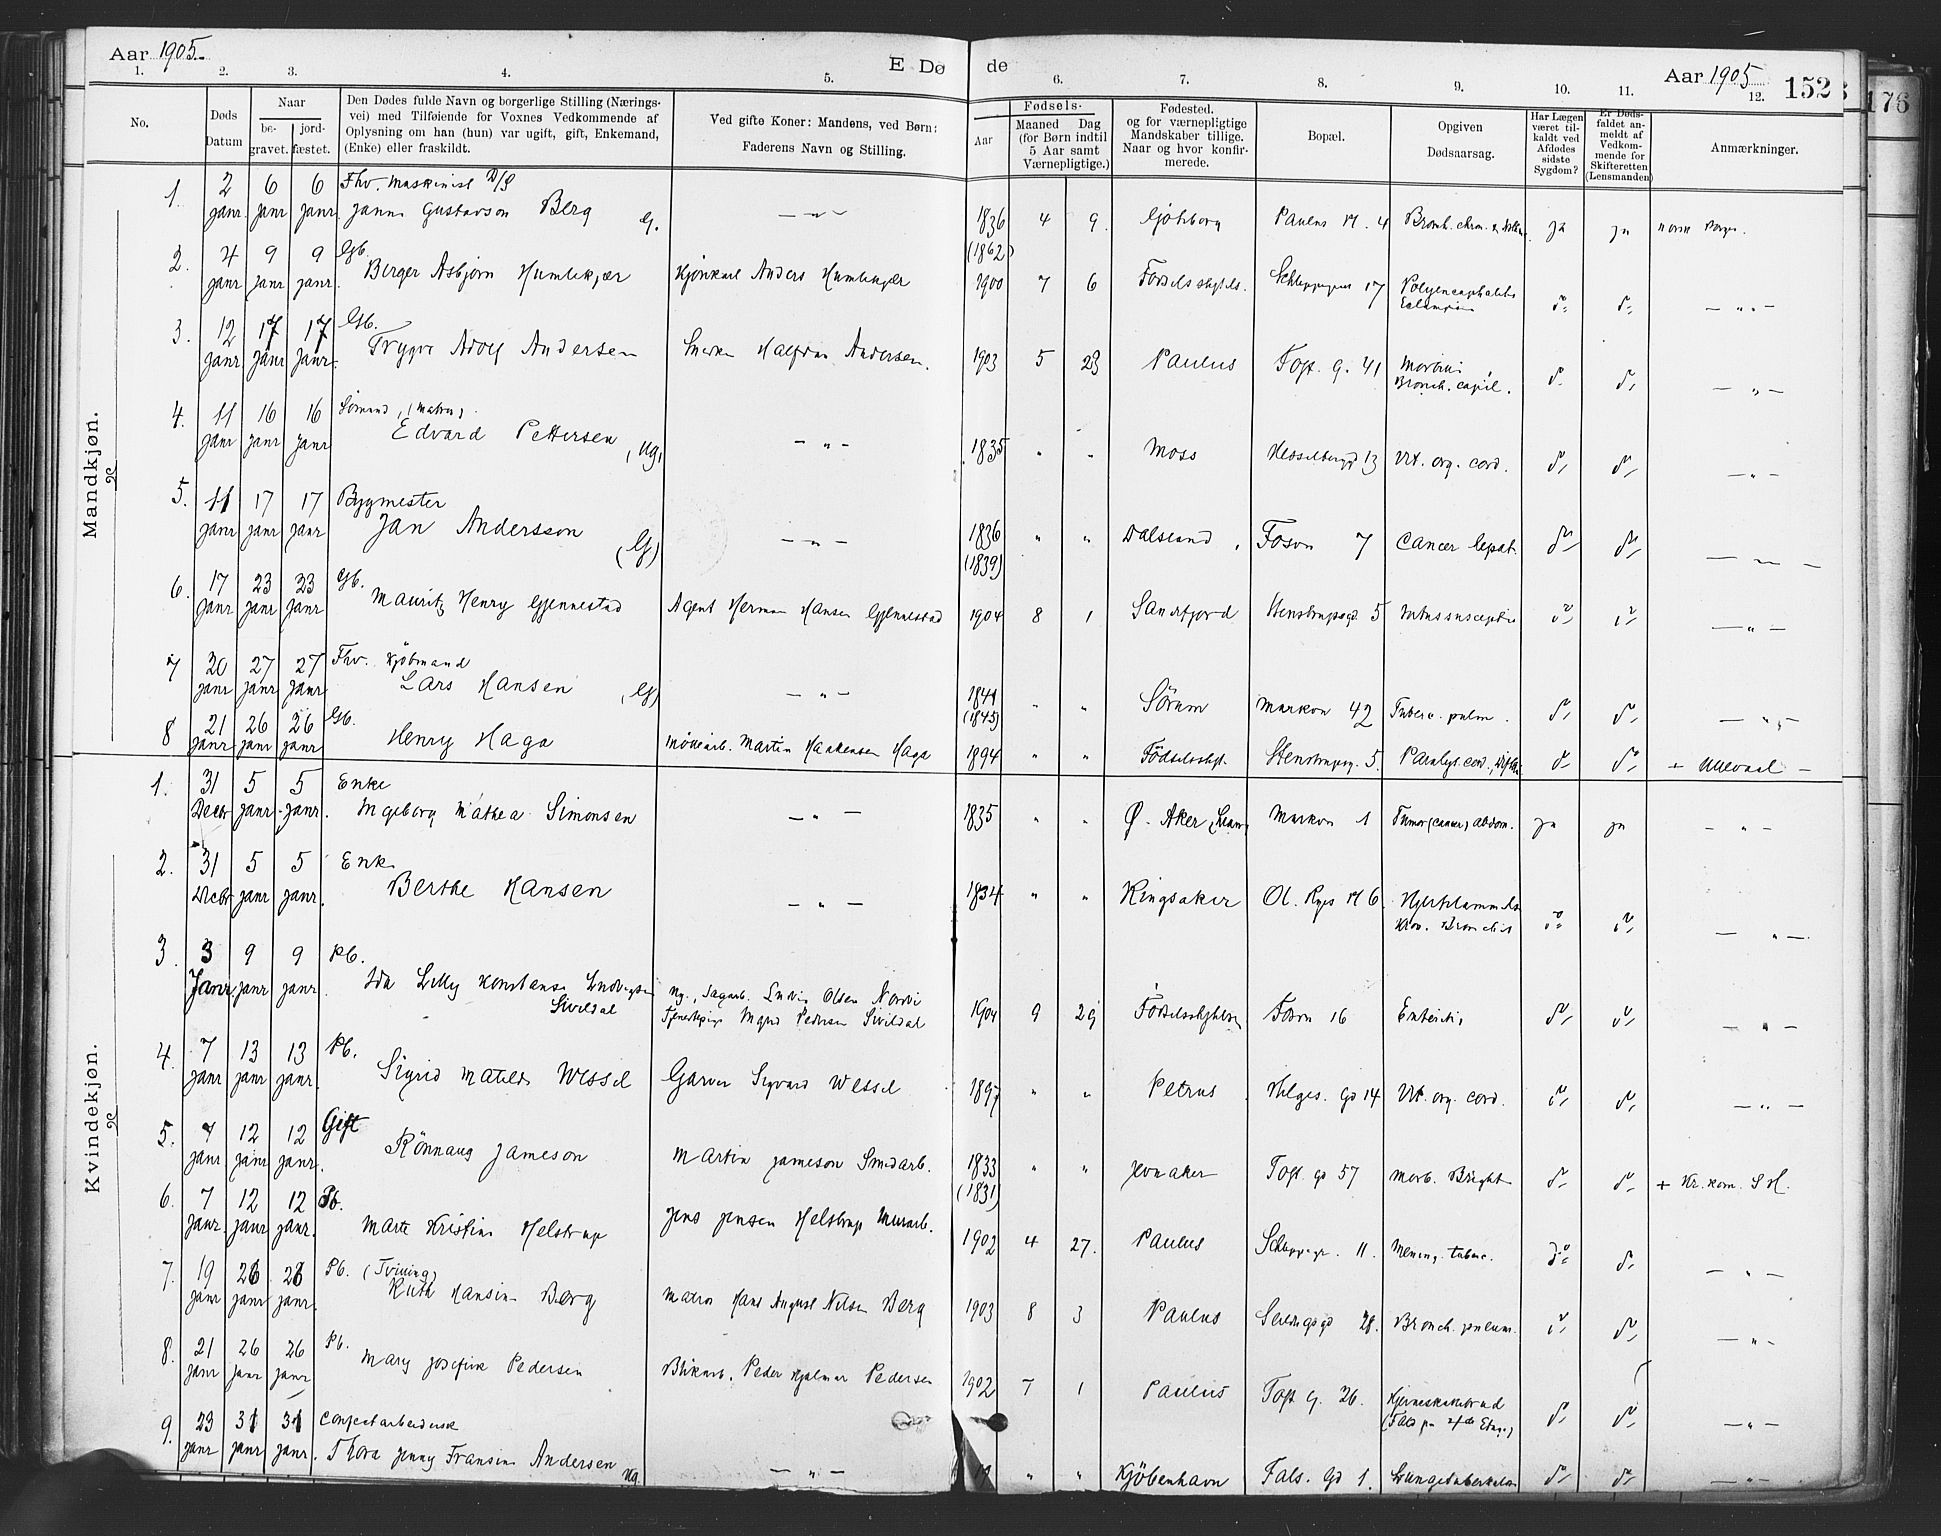 Aar 1905.
E Dø de
Aar 1905
152
176
1. 2. 3. 4. 5. 6. 7. 8. 9. 10. 11. 12.
No.
Døds Datum
Naar
be- gravet.
jord- fæstet.
Den Dødes fulde Navn og borgerlige Stilling (Nærings-
vei) med Tilføiende for Voxnes Vedkommende af
Oplysning om han (hun) var ugift, gift, Enkemand,
(Enke) eller fraskildt.
Ved gifte Koner: Mandens, ved Børn:
Faderens Navn og Stilling.
Fødsels-
Aar
Maaned Dag
(for Børn indtil
5 Aar samt
Værnepligtige.)
Fødested,
og for værnepligtige
Mandskaber tillige.
Naar og hvor konfir-
merede.
Bopæl.
Opgiven
Dødsaarsag.
Har Lægen
været til-
kaldt ved
Afdødes
sidste
Sygdom?
Er Døds-
faldet an-
meldt af
Vedkom-
mende for
Skifteretten
(Lensmanden)
Anmærkninger.
Mandkjøn.
1. 2 Janr 6 Janr 6 Janr. Fhv. Maskinist D/S
Gustavson Berg G. — „ — 1836 (1862) 4 9 Gjøteborg Paulus Pl. 4 Bronch. chron. ja ja norsk Borger.
2. 4 Janr 9 Janr 9 Janr. Gb.
Berger Asbjørn Humlekjær Kjørekarl Anders Humlekjær 1900 7 6 Fødselsstiftels. Schleppegrs 17 Polyencephalitis
Eclampsia do do — „ —
3. 12 Janr 17 Janr 17 Janr. Gb.
Trygve Adolf Andersen Snedker Halfdan Andersen. 1903 5 23 Paulus Toft. g. 41 Morbilli
Bronch. capil. do do — „ —
4. 11 Janr 16 Janr 16 Janr Sømand, (Matros)
Edvard Pettersen (ug.) — „ — 1835 „ „ Moss Hesselbergd 13 Vit. org. cord. do do — „ —
5. 11 Janr 17 Janr 17 Janr Bygmester
Jan Andersson (G) — „ — 1836 (1839) „ „ Dalsland Fosvn 7 Cancer hepat. do do — „ —
6. 17 Janr 23 Janr 23 Janr Gb.
Mauritz Henry Gjennestad Agent Herman Hansen Gjennestad 1904 8 1 Sandefjord Stenstrupsgd. 5 Intussusceptio do do — „ —
7 20 Janr 27 Janr 27 Janr Fhv. Kjøbmand
Lars Hansen (G) — „ — 1841 (1845) „ „ Sørum Markvn 42 Tuberc. pulm. do do — „ —
8 21 Janr 26 Janr 26 Janr Gb.
Henry Haga Møllearb. Martin Haakensen Haga 1894 „ „ Fødselsstift. Stenstrupsg. 5. Paralys. cord., Difteri do do + Ullevaal —
Kvindekjøn.
1. 31 Decbr 5 Janr 5 Janr. Enke
Ingeborg Mathea Simonsen — „ — 1835 „ „ Ø. Aker Markvn 1 Tumor (cancer) abdom. ja ja — „ —
2. 31 Decbr 5 Janr 5 Janr. Enke
Berthe Hansen — „ — 1834 „ „ Ringsaker Ol. Ryes Pl 6
Kron. Bronchit do do — „ —
3. 3 Janr. 9 Janr 9 Janr Pb.
Ida Lilly Konstanse Ludvigsen
Sivildal Ug., Sagarb. Ludvig Olsen Nordvi
Tjenestepige Ingrid Pedersen Sivildal 1904 9 29 Fødselsstiftelsen Fosvn 16 Enteritis do do — „ —
4. 7 Janr 13 Janr 13 Janr. Pb.
Sigrid Matilde Wessel Garver Sigvard Wessel 1897 „ „ Petrus Helges. gd 14 Vit. org. cord. do do — „ —
5. 7 Janr 12 Janr 12 Janr. Gift
Rönnaug Jameson Martin Jameson Smedarb. 1833 (1831) „ „ Toft. gd 57 Morb. Brighti do do + Kr. kom. S H.
6. 7 Janr 12 Janr 12 Janr. Pb.
Marte Kristine Helstrup Jens Jensen Helstrup Murarb. 1902 4 27. Paulus Schleppegr. 11. Mening. tuberc. do do — „ —
7. 19 Janr 26 Janr 26 Janr. Pb. (Tvilling)
Ruth Hansine Berg Matros Hans August Nilsen Berg 1903 8 3 Paulus Seilduksgd 28. Bronch. pneum. do do — „ —
8. 21 Janr 26 Janr 26 Janr Pb.
Mary Josefine Pedersen Blikarb. Peder Hjalmar Pedersen 1902 7 1 Paulus Toft g. 26. Hjerneskalebrud
(Fald fra 4de Etage) do do — „ —
9. 23 Janr 31 Janr 31 Janr. Confectarbeiderske
Thora Jenny Fransine Andersen ug — „ — „ „ Kjöbenhavn Fals. gd 1. Lungetuberkulose do do — „ —